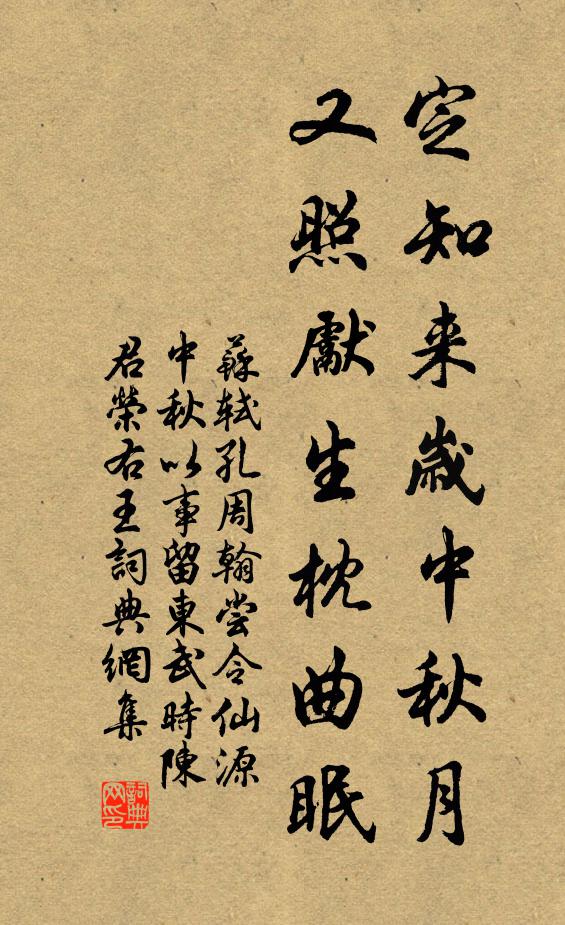 定知来歲中秋月
又照獻生枕曲眠
蘇軾孔周翰嘗令仙源
中秋以事留東武時陳
君榮古王詞典網集
詞典
网印